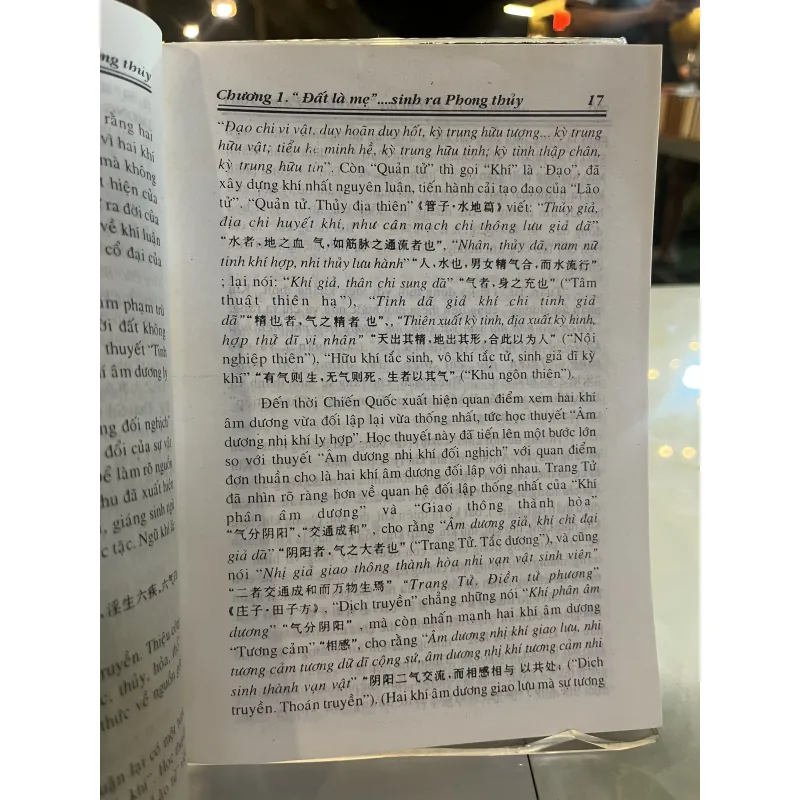 ong thủy
rằng hai
vì hai khí
mà không
t hiện của
ra đời của
về khí luận
cổ đại của
am phạm trù
ời đất không
thuyết “Tinh
í âm dương ly
ng đối nghịch”
đổi của sự vật
để làm rõ nguồn
hu đã xuất hiện
, giáng sinh ngũ
c tặc. Ngũ khí là
，淫生六疾，六气曰
ruyền. Thiệu công
c, thủy, hỏa, thổ
thức về nguồn gố
Chương 1. “ Đất là mẹ”....sinh ra Phong thủy 17
“Đạo chi vi vật, duy hoãn duy hốt, kỳ trung hữu tượng... kỳ trung
hữu vật; tiểu hề minh hề, kỳ trung hữu tinh; kỳ tinh thập chân,
kỳ trung hữu tín”. Còn “Quản tử” thì gọi “Khí” là “Đạo”, đã
xây dựng khí nhất nguyên luận, tiến hành cải tạo đạo của “Lão
tử”. “Quản tử. Thủy địa thiên” 《管子·水地篇》 viết: “Thủy giả,
địa chi huyết khí, như cân mạch chi thông lưu giả dã”
“水者，地之血 气，如筋脉之通流者也”, “Nhân, thủy dã, nam nữ
tinh khí hợp, nhi thủy lưu hành” “人，水也，男女精气合，而水流行”
; lại nói: “Khí giả, thân chi sung dã” “气者，身之充也” (“Tâm
thuật thiên hạ”), “Tinh dã giả khí chi tinh giả
dã” “精也者，气之精者 也”、, “Thiên xuất kỳ tinh, địa xuất kỳ hình,
hợp thử dĩ vi nhân” “天出其精，地出其形，合此以为人” (“Nội
nghiệp thiên”), “Hữu khí tắc sinh, vô khí tắc tử, sinh giả dĩ kỳ
khí” “有气则生，无气则死，生者以其气” (“Khu ngôn thiên”).
Đến thời Chiến Quốc xuất hiện quan điểm xem hai khí
âm dương vừa đối lập lại vừa thống nhất, tức học thuyết “Âm
dương nhị khí ly hợp”. Học thuyết này đã tiến lên một bước lớn
so với thuyết “Âm dương nhị khí đối nghịch” với quan điểm
đơn thuần cho là hai khí âm dương đối lập với nhau. Trang Tử
đã nhìn rõ ràng hơn về quan hệ đối lập thống nhất của “Khí
phân âm dương” và “Giao thông thành hòa”
“气分阴阳”、“交通成和” , cho rằng “Âm dương giả, khí chi đại
giả dã” “阴阳者，气之大者也” (“Trang Tử. Tắc dương”), và cũng
nói “Nhị giả giao thông thành hòa nhi vạn vật sinh viên”
“二者交通成和而万物生焉” “Trang Tử, Điền tử phương”
《庄子·田子方》, “Dịch truyền” chẳng những nói “Khí phân âm
dương” “气分阴阳” , mà còn nhấn mạnh hai khí âm dương
“Tương cảm” “相感”, cho rằng “Âm dương nhị khí giao lưu, nhi
tương cảm tương dữ dĩ cộng sử, âm dương nhị khí tương cảm nhi
sinh thành vạn vật” “阴阳二气交流，而相感相与 以共处， (“Dịch
truyền. Thoán truyền”), (Hai khí âm dương giao lưu mà sự tương